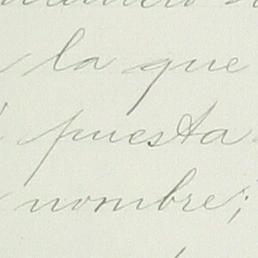 la que
puesta
nombre;